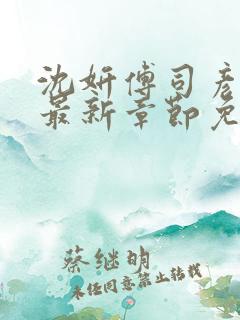 沈妍傅司彦
最新章節免
蔡继明
未经同意禁止转载